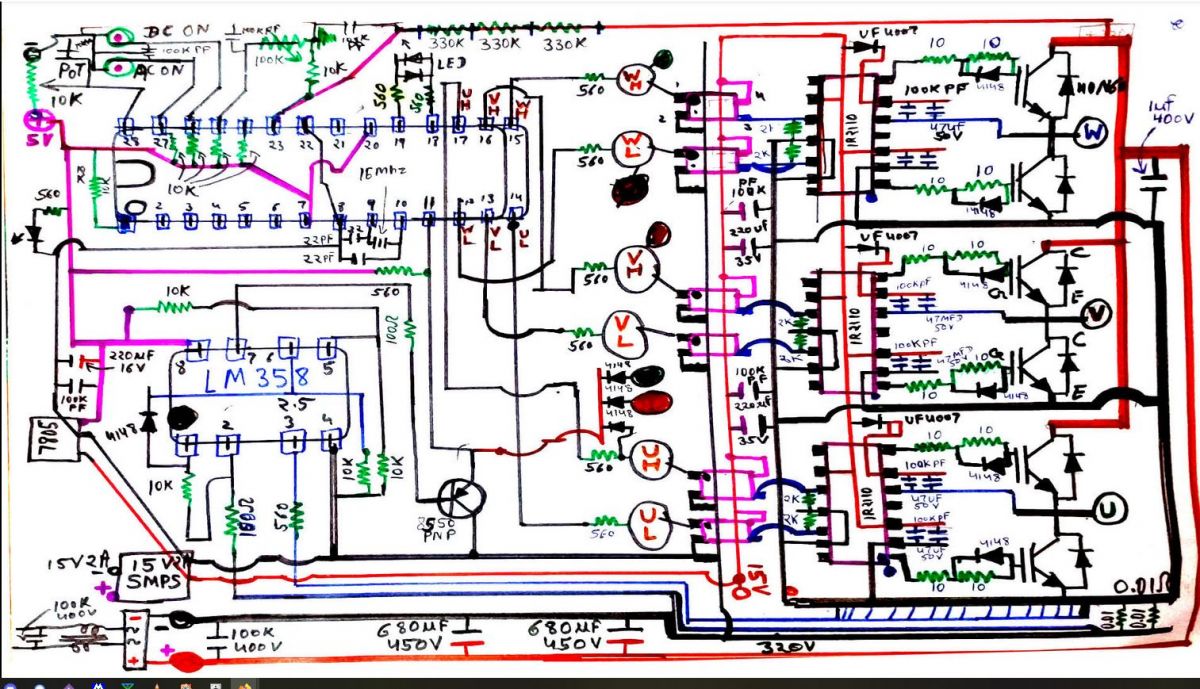 DC ON
AC ON
100KPF
POT
10K
5V
100K
10K
330K 330K 330K
LED
560
560
UH
VH
WH
28 27 23 22 21 20 19 18 17 16 15
10K
16Mhz
R8 10K
560
2 3 4 5 6 7 8 9 10 11 12 13 14
WL
VL
UL
22PF
22
22PF
560
10K
100Ω
8 7 6 5
LM358
2.5
1 2 3 4
220MF
16V
100K
PF
7805
4148
10K
10K
10K
100Ω
560
2S50
PNP
560
WH
560
WL
560
VH
560
VL
4148
4148
4148
560
UH
560
UL
1
2
3
4
2K
2K
PF
100K
220UF
35V
2K
2K
100K
PF
220UF
35V
2K
2K
15V
UF4007
IR2110
10 10
4148
100KPF
47UF
50V
10 10
4148
W
1uf
400V
UF4007
IR2110
10 10
4148
G
C
E
100KPF
47MFD
50V
V
100KPF
47MFD
50V
10 10
4148
G
C
E
UF4007
IR2110
10 10
4148
100KPF
47UF
50V
U
100KPF
47UF
50V
10 10
4148
0.01Ω
0.01
0.01
15V2A
15V2A
SMPS
100K
400V
100K
400V
680MF
450V
680MF
450V
320V